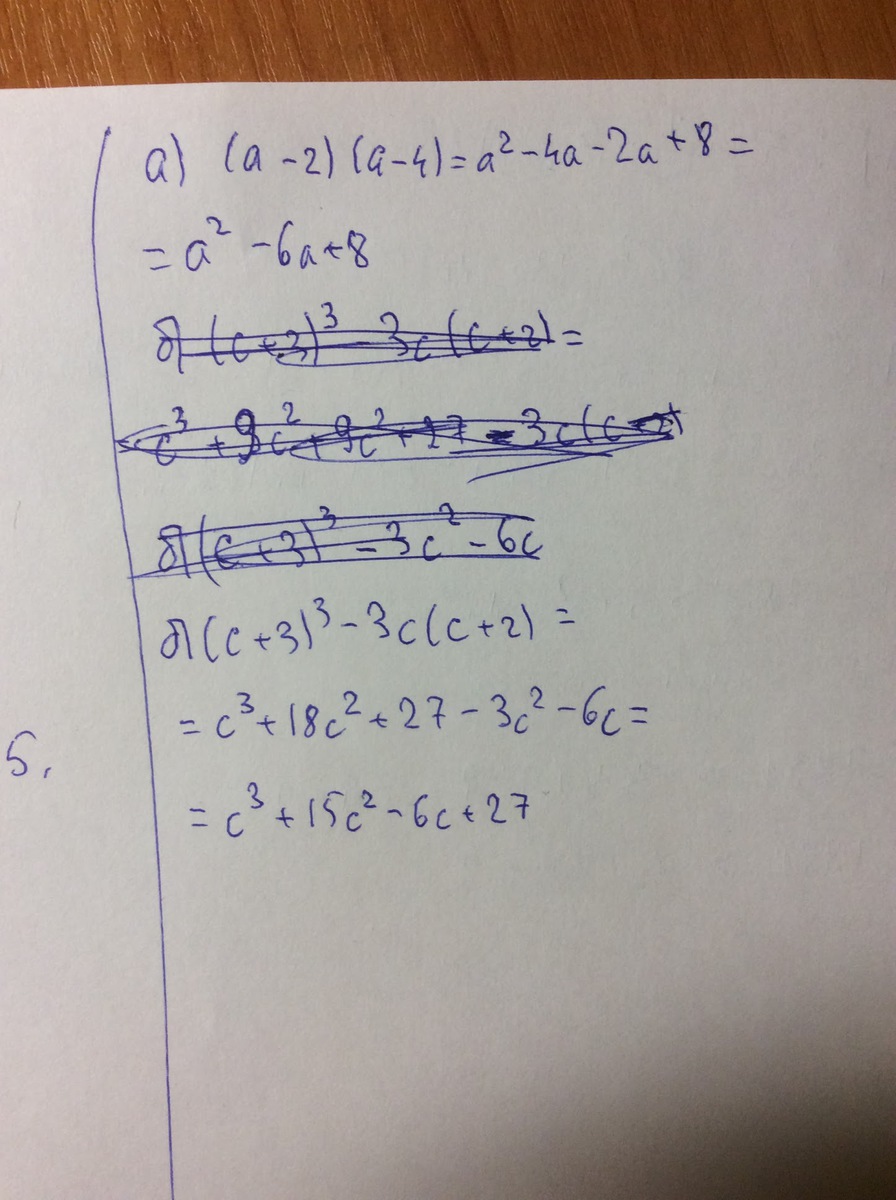 а) (a-2)(a-4)=a²-4a-2a+8=
=a²-6a+8
б) (c+3)³-3c(c+2)=
c³+9c²+9c²+27-3c(c+2)
б) (c+3)³-3c²-6c
б) (c+3)³-3c(c+2)=
=c³+18c²+27-3c²-6c=
5.
=c³+15c²-6c+27